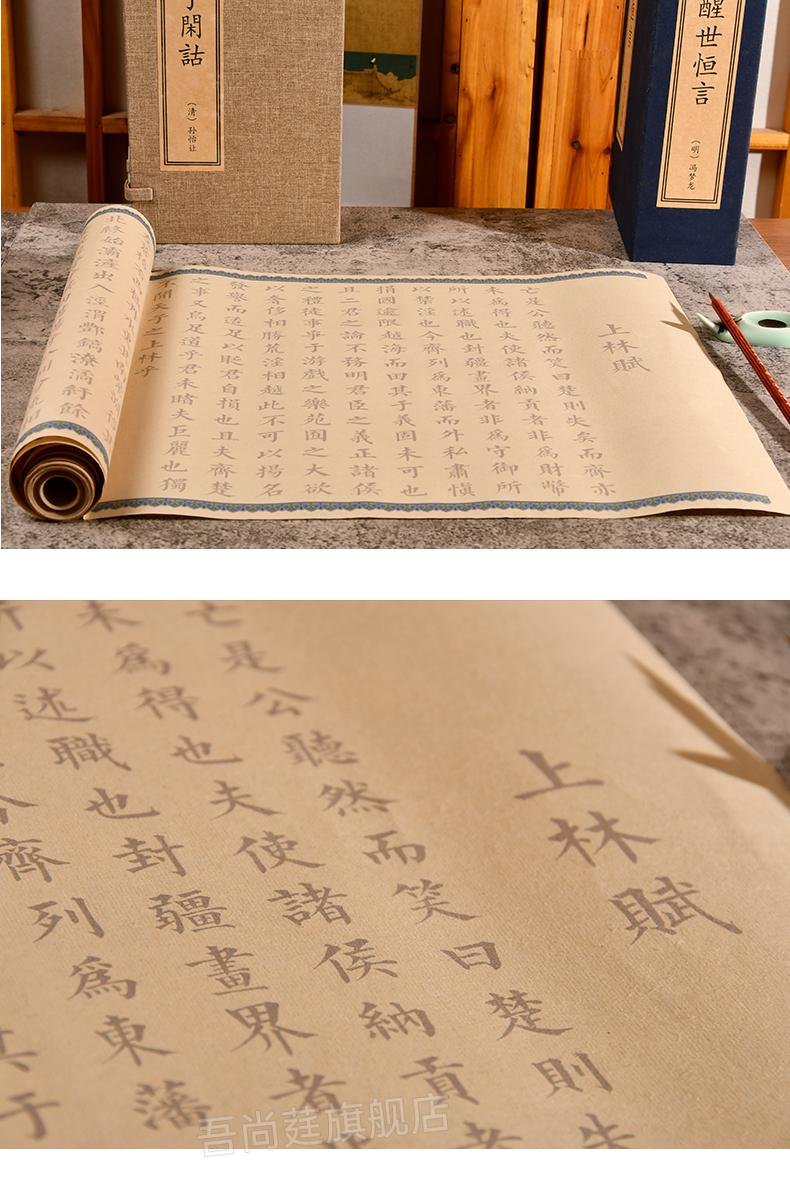 子閑詁
（清）孙怡让
醒世恒言
（明）冯梦龙
上林賦
亡是公聽然而笑曰楚則失矣而齊亦
未爲得也夫使諸侯納貢者非爲財幣
所以述職也封疆畫界者非爲守御所
以禁淫也今齊列爲東藩而外私肅慎
捐國逾限越海而田其于義固未可也
且二君之論不務明君臣之義正諸侯
之禮徒事爭于游戲之樂苑囿之大欲
以奢侈相勝荒淫相越此不可以揚名
發譽而适足以貶君自損也且夫齊楚
之事又烏足道乎君未睹夫巨麗也獨
不聞天子之上林乎
北終始灞滻出入涇渭酆鎬潦潏紆餘
上林賦
亡是公聽然而笑曰楚則失
未爲得也夫使諸侯納貢者
所以述職也封疆畫界者
今齊列爲東藩
其于
吾尚莛旗舰店